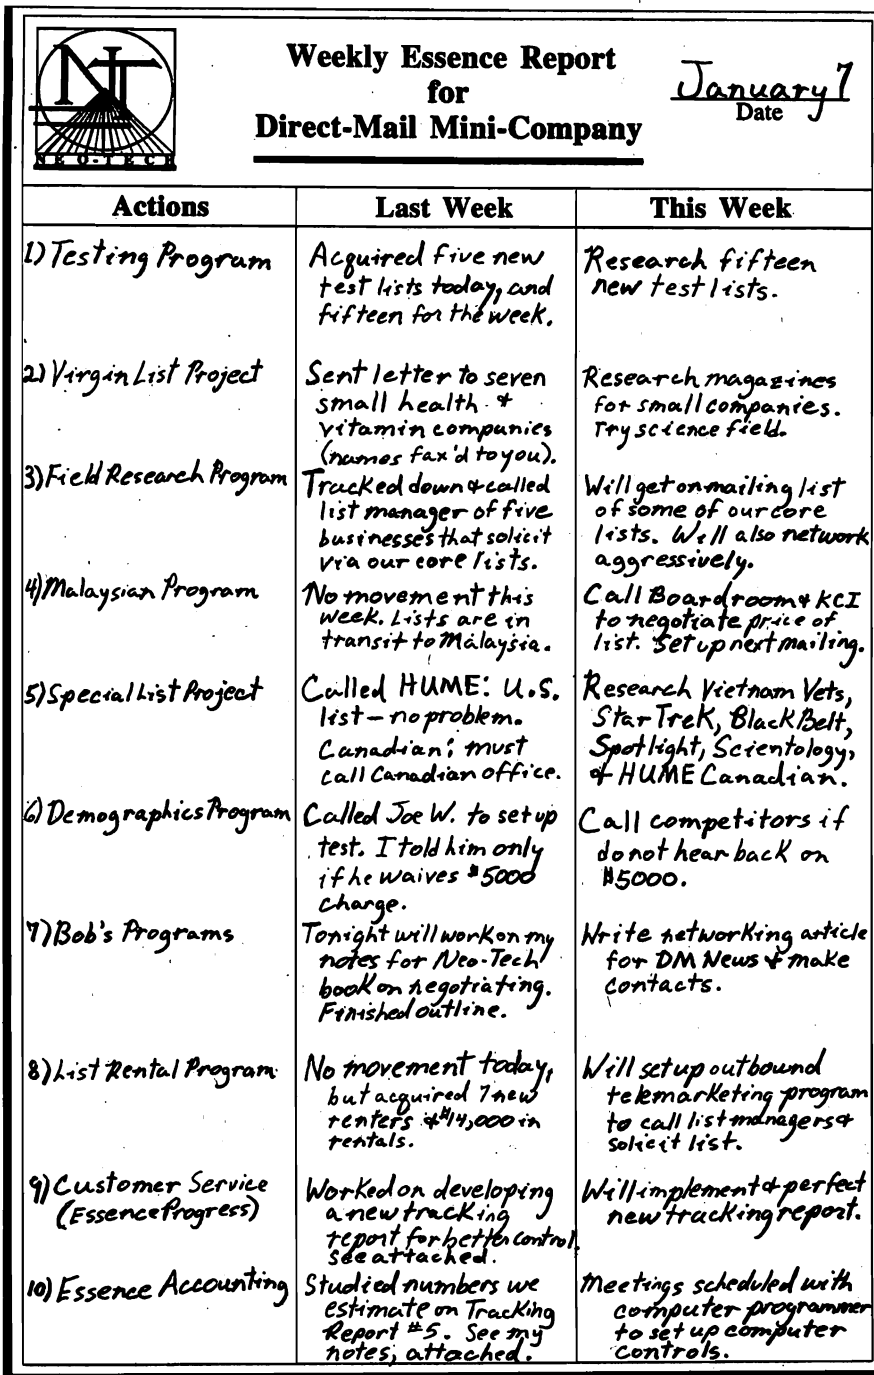 NT
NEO-TECH
Weekly Essence Report
for
Direct-Mail Mini-Company
January 7
Date
Actions
Last Week
This Week
1) Testing Program
Acquired five new
test lists today, and
fifteen for the week.
Research fifteen
new test lists.
2) Virgin List Project
Sent letter to seven
small health &
vitamin companies
(names fax'd to you).
Research magazines
for small companies.
Try science field.
3) Field Research Program
Tracked down & called
list manager of five
businesses that solicit
via our core lists.
Will get on mailing list
of some of our core
lists. Will also network
aggressively.
4) Malaysian Program
No movement this
week. Lists are in
transit to Malaysia.
Call Boardroom & KCI
to negotiate price of
list. Set up next mailing.
5) Special List Project
Called HUME: U.S.
list — no problem.
Canadian: must
call Canadian office.
Research Vietnam Vets,
Star Trek, Black Belt,
Spotlight, Scientology,
& HUME Canadian.
6) Demographics Program
Called Joe W. to set up
test. I told him only
if he waives $5000
charge.
Call competitors if
do not hear back on
$5000.
7) Bob's Programs
Tonight will work on my
notes for Neo-Tech
book on negotiating.
Finished outline.
Write networking article
for DM News & make
contacts.
8) List Rental Program
No movement today,
but acquired 7 new
renters & $14,000 in
rentals.
Will set up outbound
telemarketing program
to call list managers &
solicit list.
9) Customer Service
(Essence Progress)
Worked on developing
a new tracking
report for better control.
See attached.
Will implement & perfect
new tracking report.
10) Essence Accounting
Studied numbers we
estimate on Tracking
Report #5. See my
notes, attached.
Meetings scheduled with
computer programmer
to set up computer
controls.